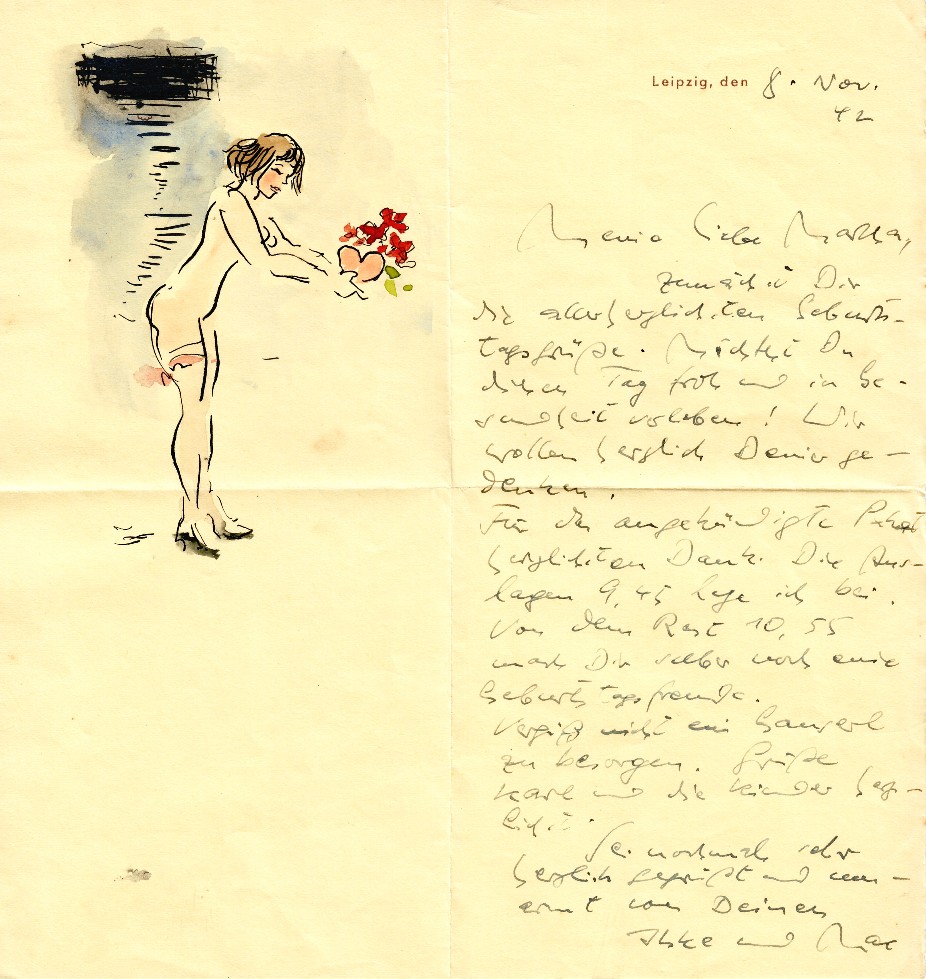 Leipzig, den 8. Nov.
42
Meine liebe Martha,
zunächst Dir
die allerherzlichsten Geburts-
tagsgrüße. Möchtest Du
diesen Tag froh und in Ge-
sundheit verleben! Wir
wollen herzlich Deiner ge-
denken.
Für das angekündigte Paket
herzlichsten Dank. Die Aus-
lagen 9,45 lege ich bei.
Von dem Rest 10,55
mach Dir selber noch eine
Geburtstagsfreude.
Vergiß nicht ein
zu besorgen. Grüße
Karl und die Kinder herz-
lichst.
Sei nochmals sehr
herzlich gegrüßt und um-
armt von Deinen
und Max